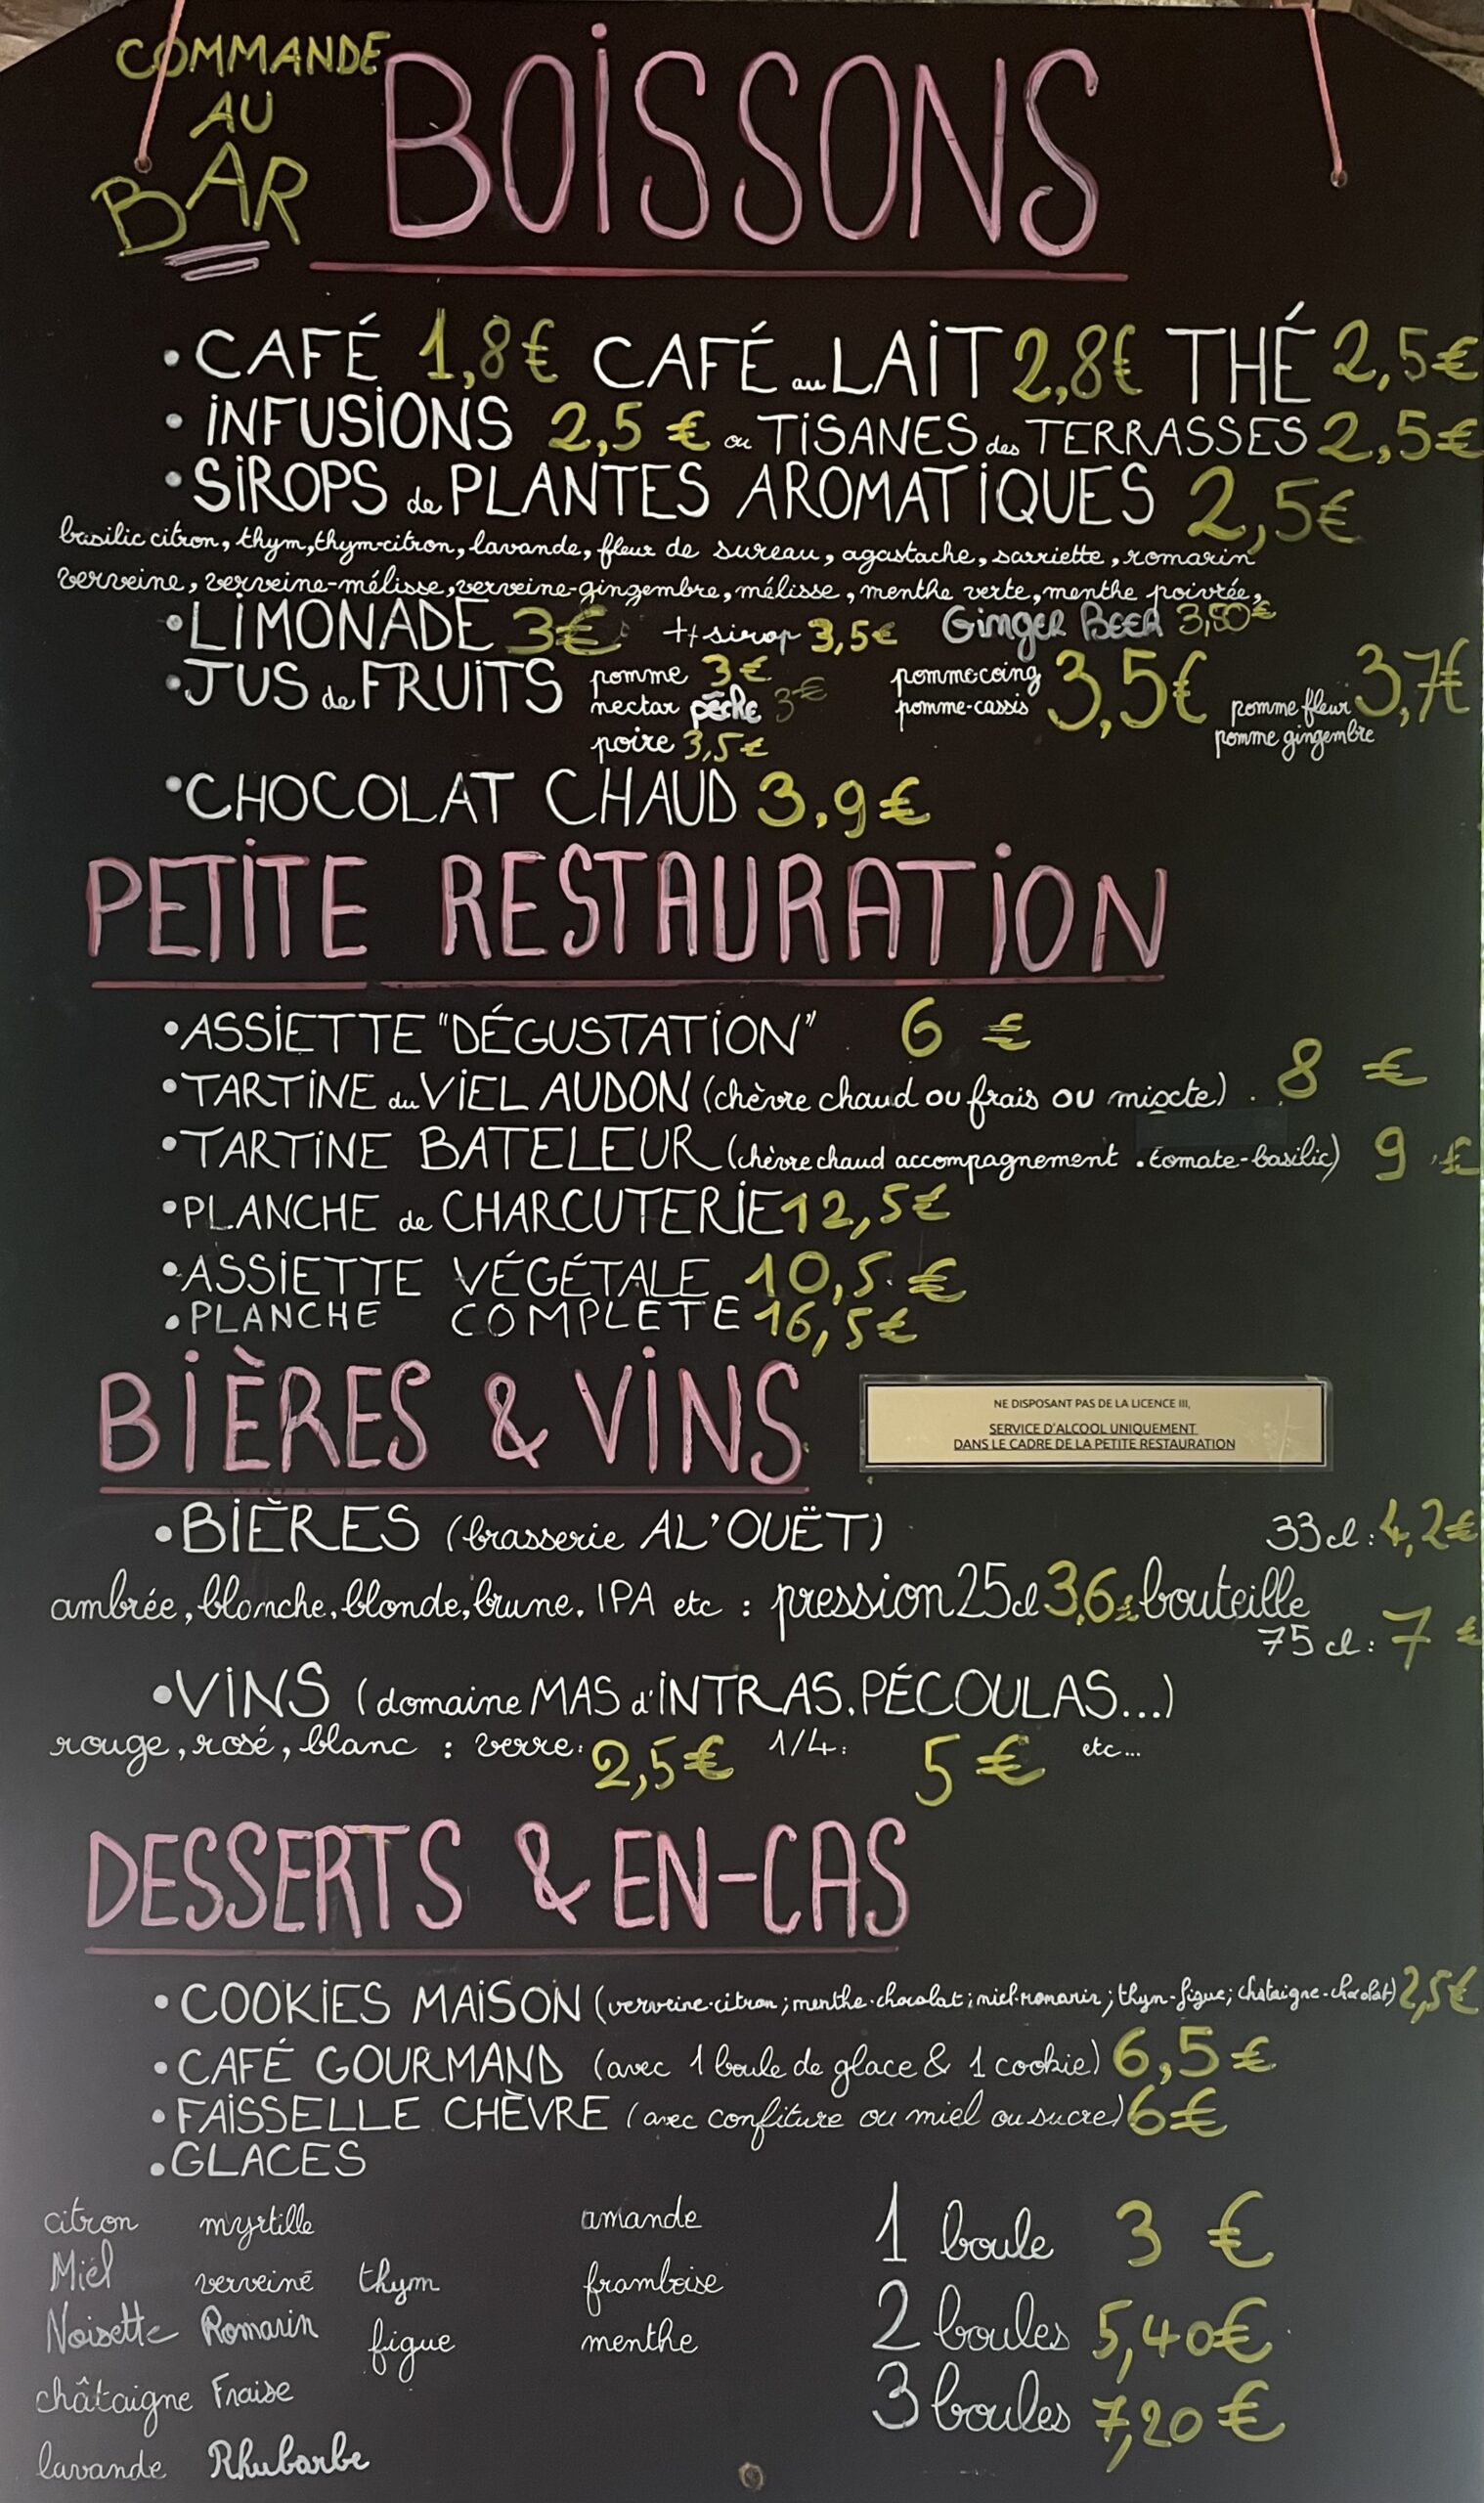 COMMANDE
AU
BAR
BOISSONS
• CAFÉ 1,8€ CAFÉ au LAIT 2,8€ THÉ 2,5€
• INFUSIONS 2,5 € ou TISANES des TERRASSES 2,5€
• SIROPS de PLANTES AROMATIQUES 2,5€
basilic citron, thym, thym-citron, lavande, fleur de sureau, agastache, sarriette, romarin
verveine, verveine-mélisse, verveine-gingembre, mélisse, menthe verte, menthe poivrée,
• LIMONADE 3€ ++ sirop 3,5€ GINGER BEER 3,50€
• JUS de FRUITS pomme 3€
nectar pêche 3€
poire 3,5€
pomme-coing
pomme-cassis 3,5€
pomme fleur 3,7€
pomme gingembre
• CHOCOLAT CHAUD 3,9€
PETITE RESTAURATION
• ASSIETTE "DÉGUSTATION" 6 €
• TARTINE du VIEL AUDON (chèvre chaud ou frais ou mixte) 8 €
• TARTINE BATELEUR (chèvre chaud accompagnement . tomate-basilic) 9 €
• PLANCHE de CHARCUTERIE 12,5€
• ASSIETTE VÉGÉTALE 10,5 €
• PLANCHE COMPLETE 16,5€
BIÈRES & VINS
NE DISPOSANT PAS DE LA LICENCE III,
SERVICE D'ALCOOL UNIQUEMENT
DANS LE CADRE DE LA PETITE RESTAURATION
• BIÈRES (brasserie AL'OUËT) 33cl : 4,2€
ambrée, blanche, blonde, brune, IPA etc : pression 25cl 3,6€ bouteille
75cl : 7 €
• VINS (domaine MAS d'INTRAS, PÉCOULAS...)
rouge, rosé, blanc : verre: 2,5€ 1/4: 5€ etc...
DESSERTS & EN-CAS
• COOKIES MAISON (verveine-citron; menthe-chocolat; miel-romarin; thym-figue; chataigne-chocolat) 2,5€
• CAFÉ GOURMAND (avec 1 boule de glace & 1 cookie) 6,5€
• FAISSELLE CHÈVRE (avec confiture ou miel ou sucre) 6€
• GLACES
citron myrtille amande
Miel verveine thym framboise
Noisette Romarin figue menthe
châtaigne Fraise
lavande Rhubarbe
1 boule 3 €
2 boules 5,40€
3 boules 7,20 €